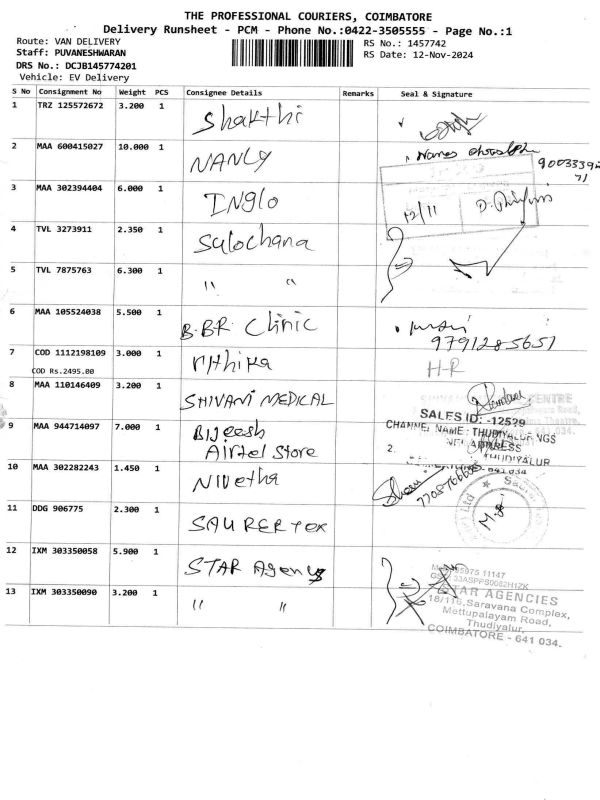 THE PROFESSIONAL COURIERS, COIMBATORE
Delivery Runsheet - PCM - Phone No.:0422-3505555 - Page No.:1
Route: VAN DELIVERY RS No.: 1457742
Staff: PUVANESHWARAN RS Date: 12-Nov-2024
DRS No.: DCJB145774201
Vehicle: EV Delivery
S No Consignment No Weight PCS Consignee Details Remarks Seal & Signature
1 TRZ 125572672 3.200 1 Shakthi
2 MAA 600415027 10.000 1 NANCY
9003339
71
3 MAA 302394404 6.000 1 INglo 12/11
4 TVL 3273911 2.350 1 Sulochana
5 TVL 7875763 6.300 1 " "
6 MAA 105524038 5.500 1 B.BR. Clinic
9791285651
7 COD 1112198109 3.000 1 rithika H-R
COD Rs.2495.00
8 MAA 110146409 3.200 1 SHIVANI MEDICAL
CENTRE
SALES ID: -12529
9 MAA 944714097 7.000 1 Bijeesh
Airtel Store
CHANNEL NAME: THUDIYALUR NGS
ADDRESS
2. THUDIYALUR
641 034
10 MAA 302282243 1.450 1 Nivetha
11 DDG 906775 2.300 1 SAURERTEX
12 IXM 303350058 5.900 1 STAR Agency
13 IXM 303350090 3.200 1 " "
STAR AGENCIES
18/116, Saravana Complex,
Mettupalayam Road,
Thudiyalur,
COIMBATORE - 641 034.